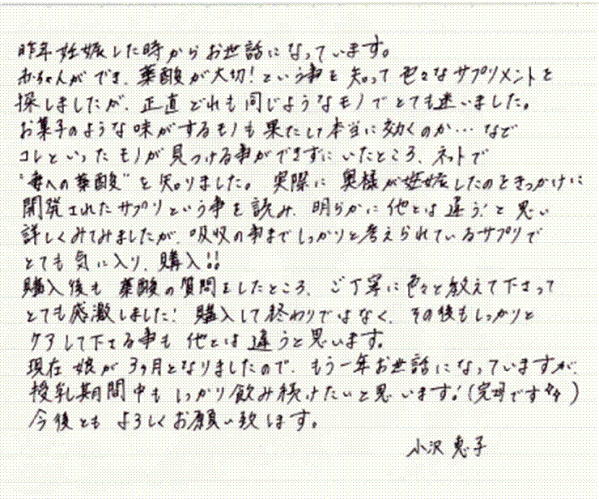 昨年妊娠した時からお世話になっています。
赤ちゃんができ、葉酸が大切!という事を知って色々なサプリメントを
探しましたが、正直どれも同じようなモノでとても迷いました。
お菓子のような味がするモノも果たして本当に効くのか…など
コレといったモノが見つける事ができずにいたところ、ネットで
"母への葉酸"を知りました。実際に奥様が妊娠したのをきっかけに
開発されたサプリという事を読み、明らかに他とは違う!と思い
詳しくみてみましたが、吸収の事までしっかりと考えられているサプリで
とても気に入り、購入!!
購入後も葉酸の質問をしたところ、ご丁寧に色々と教えて下さって
とても感激しました!購入して終わりではなく、その後もしっかりと
ケアして下さる事も他とは違うと思います。
現在娘が3ヶ月となりましたので、もう一年お世話になっていますが、
授乳期間中もしっかり飲み続けたいと思います!(完母です)
今後ともよろしくお願い致します。
小沢恵子